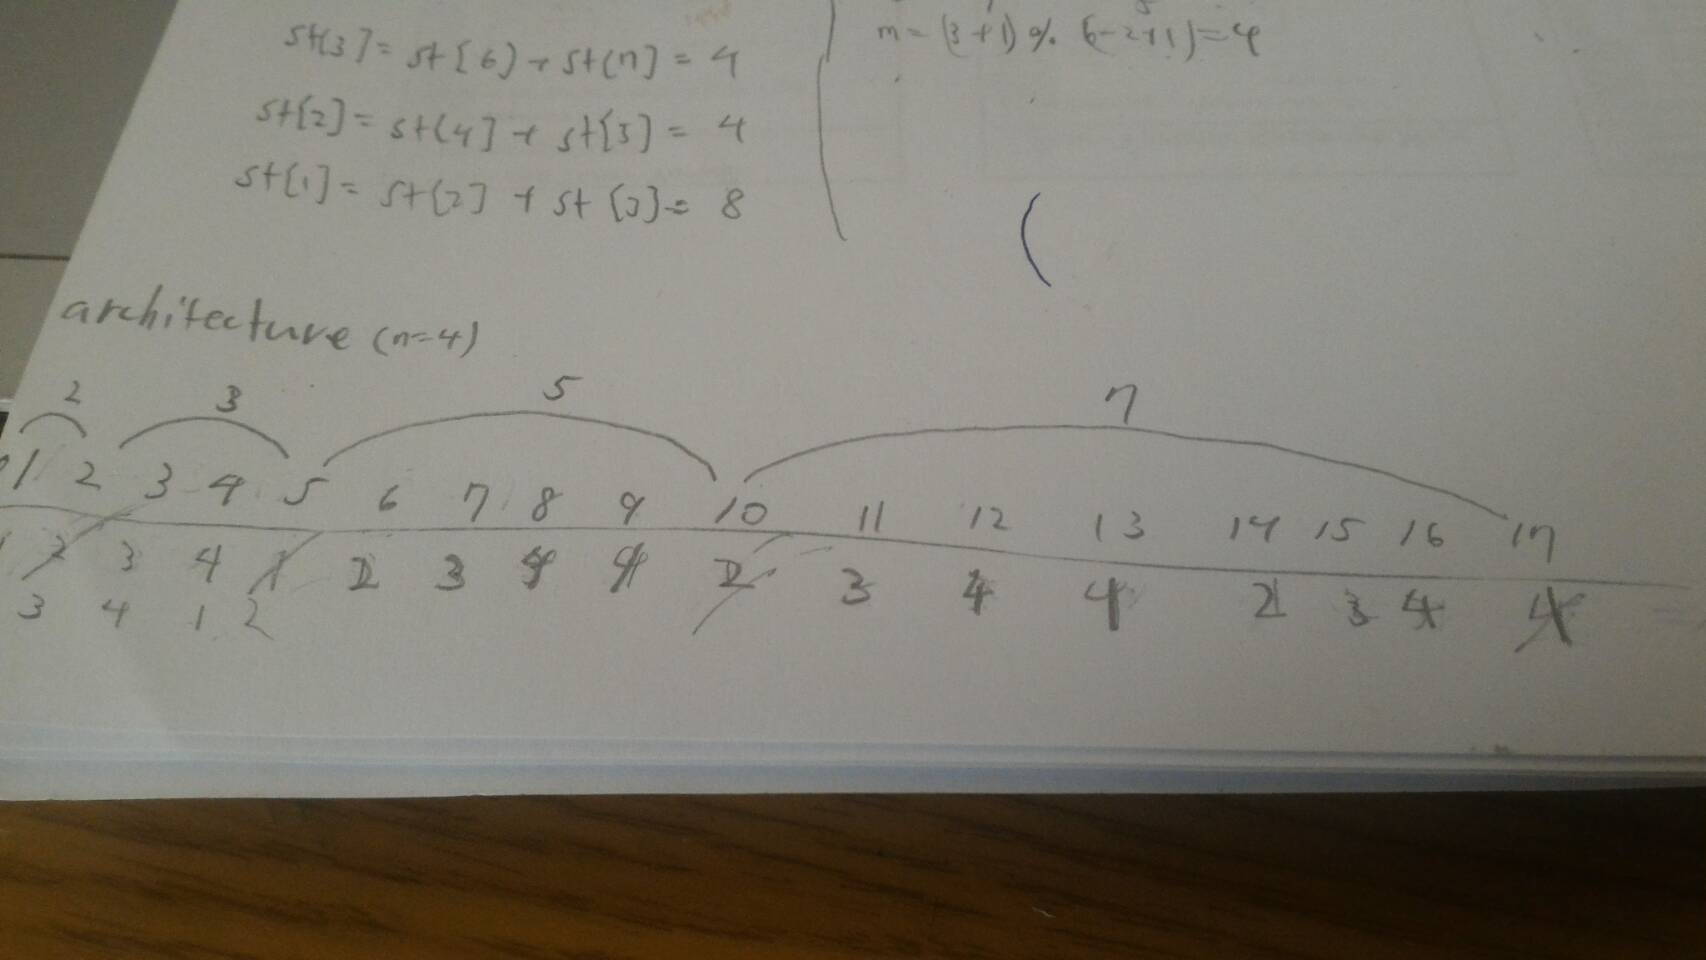 st[3] = st[6] + st[7] = 4
st[2] = st[4] + st[5] = 4
st[1] = st[2] + st[3] = 8
m = (3+1) % (6-2+1) = 4
(
architecture (n=4)
2 3 5 7
1 2 3 4 5 6 7 8 9 10 11 12 13 14 15 16 17
1 2 3 4 1 2 3 4 4 2 3 4 4 2 3 4 4
3 4 1 2